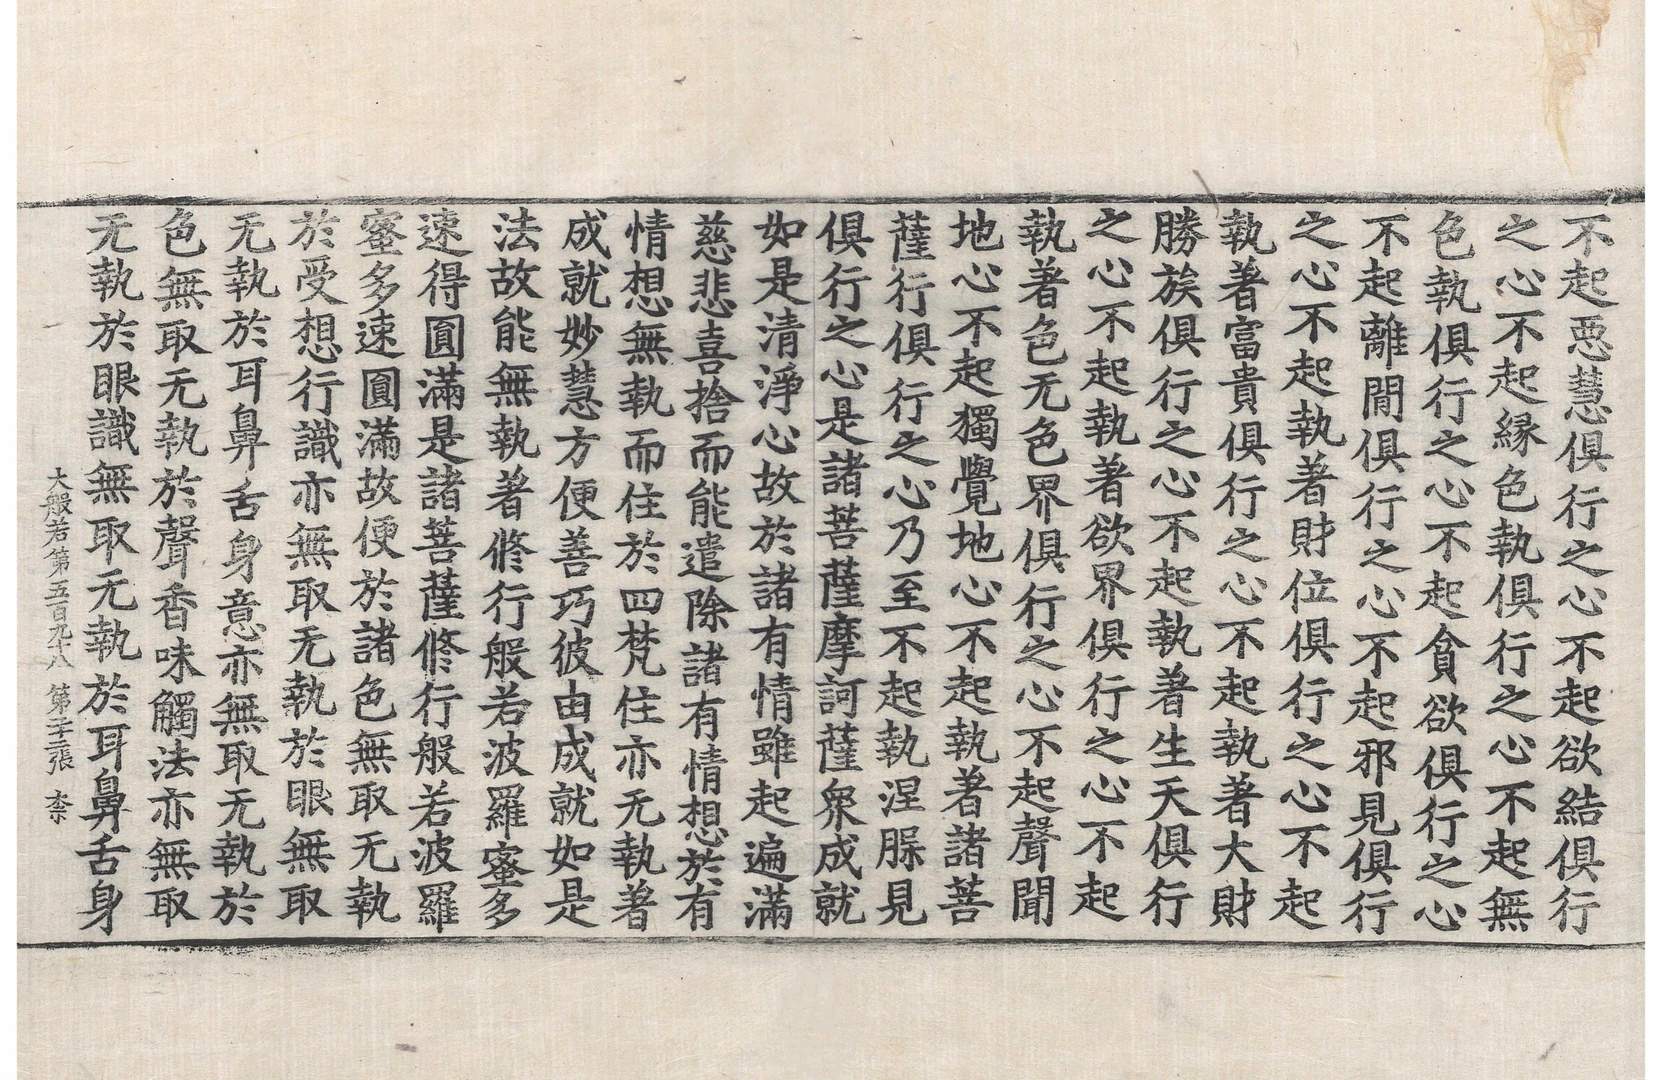 不起惡慧俱行之心不起欲結俱行
之心不起緣色執俱行之心不起無
色執俱行之心不起貪欲俱行之心
不起離間俱行之心不起邪見俱行
之心不起執著財位俱行之心不起
執著富貴俱行之心不起執著大財
勝族俱行之心不起執著生天俱行
之心不起執著欲界俱行之心不起
執著色无色界俱行之心不起聲聞
地心不起獨覺地心不起執著諸菩
薩行俱行之心乃至不起執涅槃見
俱行之心是諸菩薩摩訶薩衆成就
如是清淨心故於諸有情雖起遍滿
慈悲喜捨而能遣除諸有情想於有
情想無執而住於四梵住亦无執著
成就妙慧方便善巧彼由成就如是
法故能無執著修行般若波羅蜜多
速得圓滿是諸菩薩修行般若波羅
蜜多速圓滿故便於諸色無取无執
於受想行識亦無取无執於眼無取
无執於耳鼻舌身意亦無取无執於
色無取无執於聲香味觸法亦無取
无執於眼識無取无執於耳鼻舌身
大般若第五百九十八 第二十三張 柰